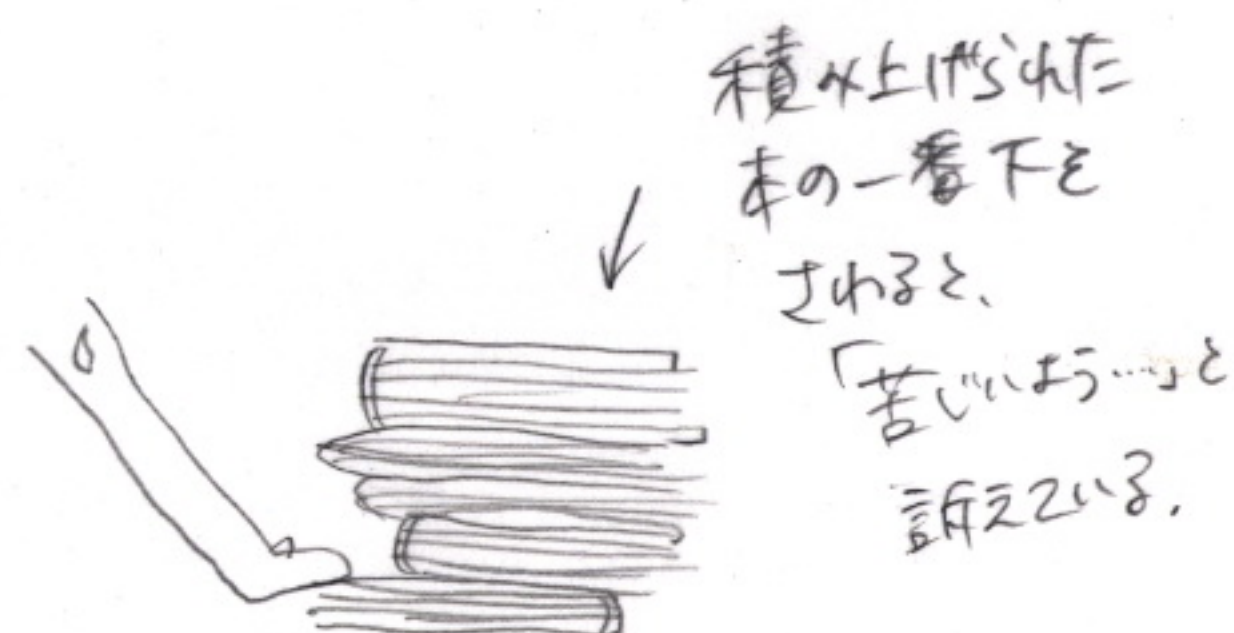 積み上げられた
本の一番下を
さわると、
「苦しいよう…」と
訴えている.